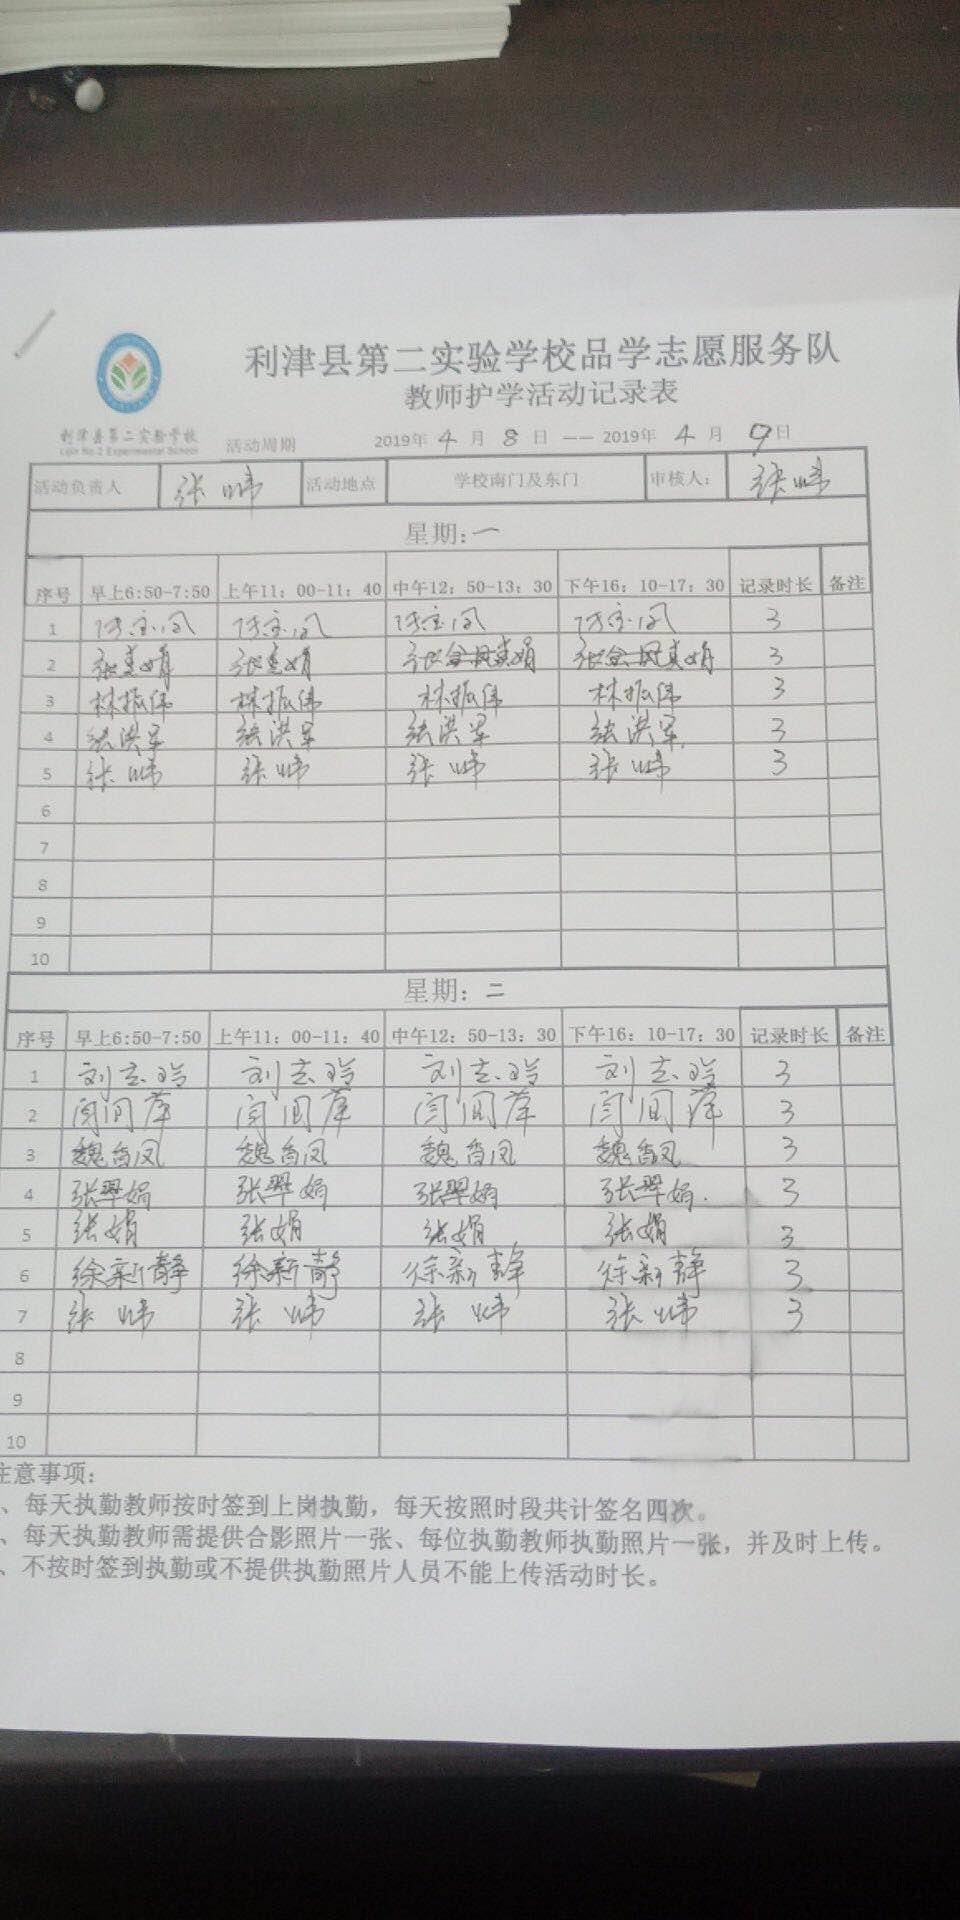 利津县第二实验学校品学志愿服务队
教师护学活动记录表
利津县第二实验学校
Lijin No.2 Experimental School
活动周期 2019年 4 月 8 日 —— 2019年 4 月 9 日
活动负责人 张 活动地点 学校南门及东门 审核人: 张
星期: 一
序号 早上6:50-7:50 上午11: 00-11: 40 中午12: 50-13: 30 下午16: 10-17: 30 记录时长 备注
1 3
2 3
3 林振伟 林振伟 林振伟 林振伟 3
4 张洪军 张洪军 张洪军 张洪军 3
5 张 张 张 张 3
6
7
8
9
10
星期: 二
序号 早上6:50-7:50 上午11: 00-11: 40 中午12: 50-13: 30 下午16: 10-17: 30 记录时长 备注
1 刘志玲 刘志玲 刘志玲 刘志玲 3
2 3
3 魏香凤 魏香凤 魏香凤 魏香凤 3
4 张翠娟 张翠娟 张翠娟 张翠娟 3
5 张娟 张娟 张娟 张娟 3
6 徐新静 徐新静 徐新静 徐新静 3
7 张 张 张 张 3
8
9
10
注意事项:
、每天执勤教师按时签到上岗执勤，每天按照时段共计签名四次。
、每天执勤教师需提供合影照片一张、每位执勤教师执勤照片一张，并及时上传。
、不按时签到执勤或不提供执勤照片人员不能上传活动时长。